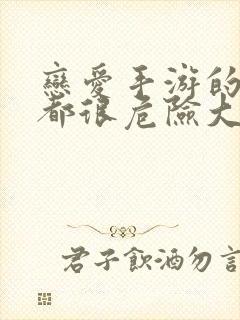 戀愛手游的
都很危險大
君子飲酒勿言